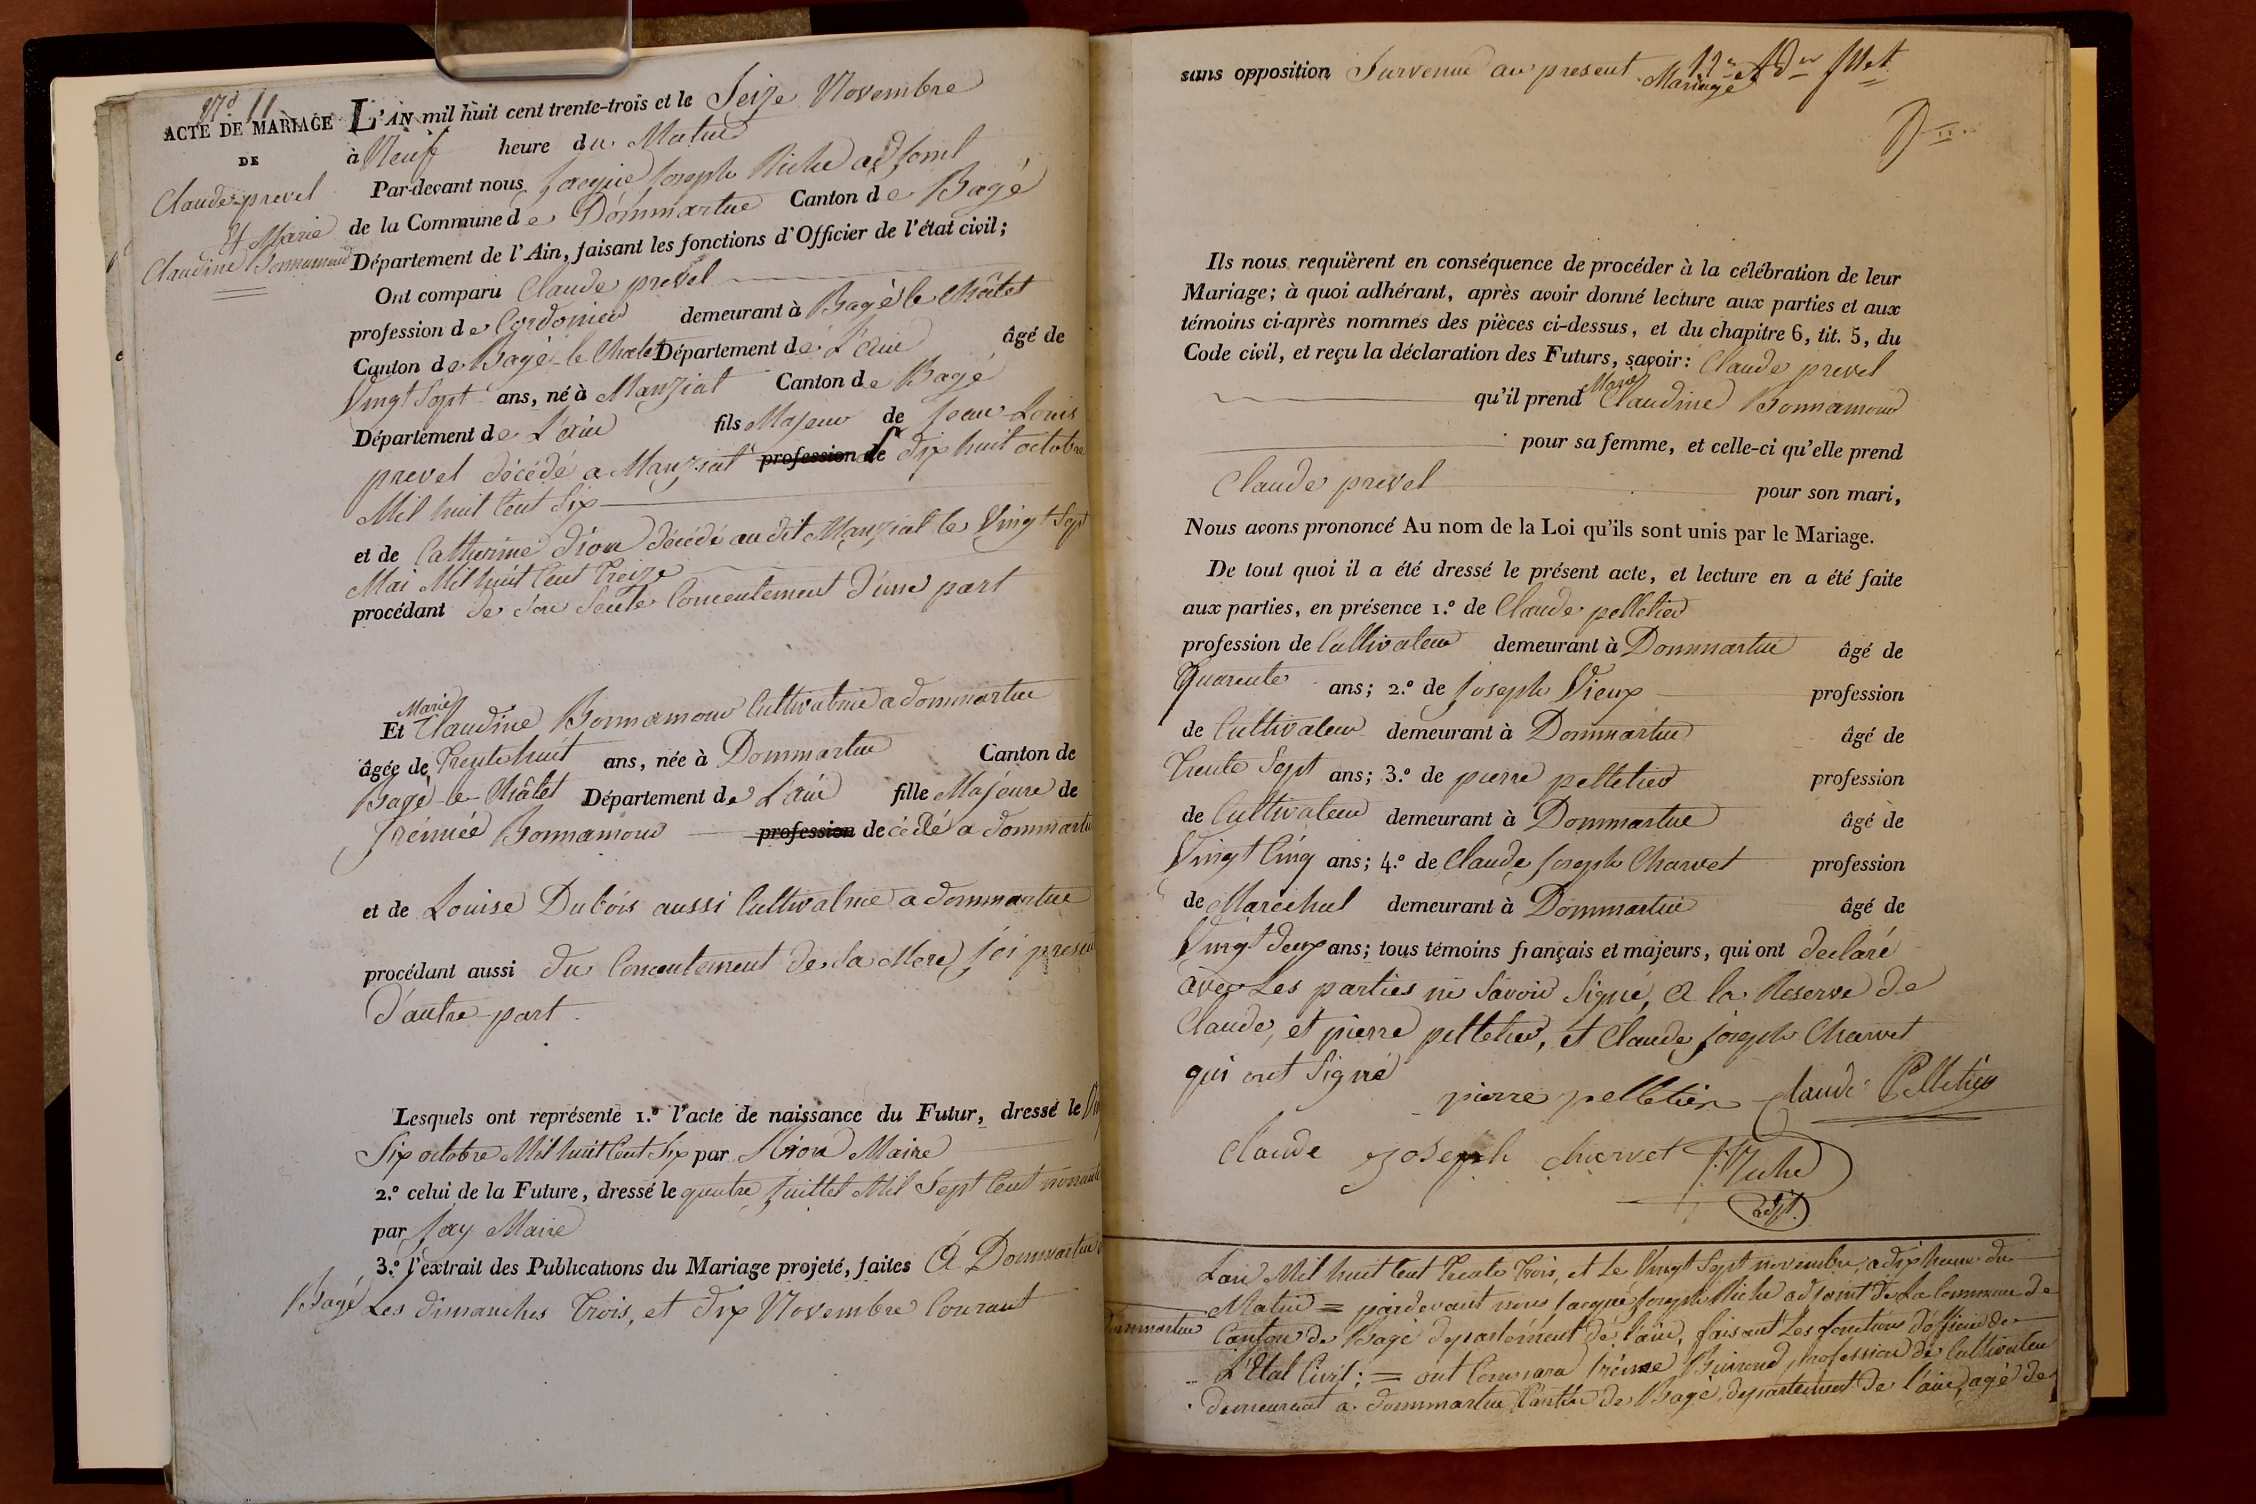 Nd 11
ACTE DE MARIAGE
DE
Claude prevel
et Marie
Claudine Bonnamour
L'AN mil huit cent trente-trois et le Seize Novembre
à Neuf heure du Matin
Par-devant nous Jacque Joseph Riche adjoint
de la Commune de Dommartin Canton de Bagé
Département de l'Ain, faisant les fonctions d'Officier de l'état civil;
Ont comparu Claude prevel
profession de Cordonier demeurant à Bagé le Châtel
Canton de Bagé-le-Chatel Département de L'ain âgé de
Vingt Sept ans, né à Manziat Canton de Bagé
Département de L'ain fils Majeur de Jean-Louis
prevel décédé a Manziat profession de dix huit octobre
Mil huit Cent Six
et de Catherine dion décédé au dit Manziat le Vingt Sept
Mai Mil huit Cent Treize
procédant de son Seule Consentement d'une part
Et Marie Claudine Bonnamour Cultivatrice a dommartin
âgée de Trente huit ans, née à Dommartin Canton de
Bagé-le-Châtel Département de L'ain fille Majeure de
Bonnamour profession decédé a dommartin
et de Louise Dubois aussi Cultivatrice a dommartin
procédant aussi du Consentement de Sa Mere, Joi present
D'autre part.
Lesquels ont représenté 1.º l'acte de naissance du Futur, dressé le
Six octobre Mil huit Cent Six par Maire
2.º celui de la Future, dressé le quatre juillet Mil Sept Cent
par Jay Maire
3.º l'extrait des Publications du Mariage projeté, faites A Dommartin
Bagé Les dimanches Trois, et dix Novembre Courant
sans opposition Survenue au present Mariage
Ils nous requièrent en conséquence de procéder à la célébration de leur
Mariage; à quoi adhérant, après avoir donné lecture aux parties et aux
témoins ci-après nommés des pièces ci-dessus, et du chapitre 6, tit. 5, du
Code civil, et reçu la déclaration des Futurs, savoir: Claude prevel
qu'il prend Marie Claudine Bonnamour
pour sa femme, et celle-ci qu'elle prend
Claude prevel pour son mari,
Nous avons prononcé Au nom de la Loi qu'ils sont unis par le Mariage.
De tout quoi il a été dressé le présent acte, et lecture en a été faite
aux parties, en présence 1.º de Claude pelletier
profession de Cultivateur demeurant à Dommartin âgé de
Quarente ans; 2.º de Joseph Vieux profession
de Cultivateur demeurant à Dommartin âgé de
Trente Sept ans; 3.º de pierre pelletier profession
de Cultivateur demeurant à Dommartin âgé de
Vingt Cinq ans; 4.º de Claude Joseph Charvet profession
de Marechal demeurant à Dommartin âgé de
Vingt deux ans; tous témoins français et majeurs, qui ont declaré
avec Les parties ne Savoir Signé, a la Reserve de
Claude, et pierre pelletier, et Claude joseph Charvet
qui ont Signé
pierre pelletier Claude Pelletier
Claude joseph charvet Riche
adjt.
L'an Mil huit Cent Trente Trois, et Le Vingt Sept novembre, a dix heure du
Matin = pardevant nous Jacque Joseph Riche adjoint de La Commune de
dommartin Canton de Bagé departement de l'ain, faisant Les fonctions d'officier de
L'Etat Civil; = ont Comparu profession de Cultivateur
demeurant a dommartin Canton de Bagé, departement de l'ain, agé de